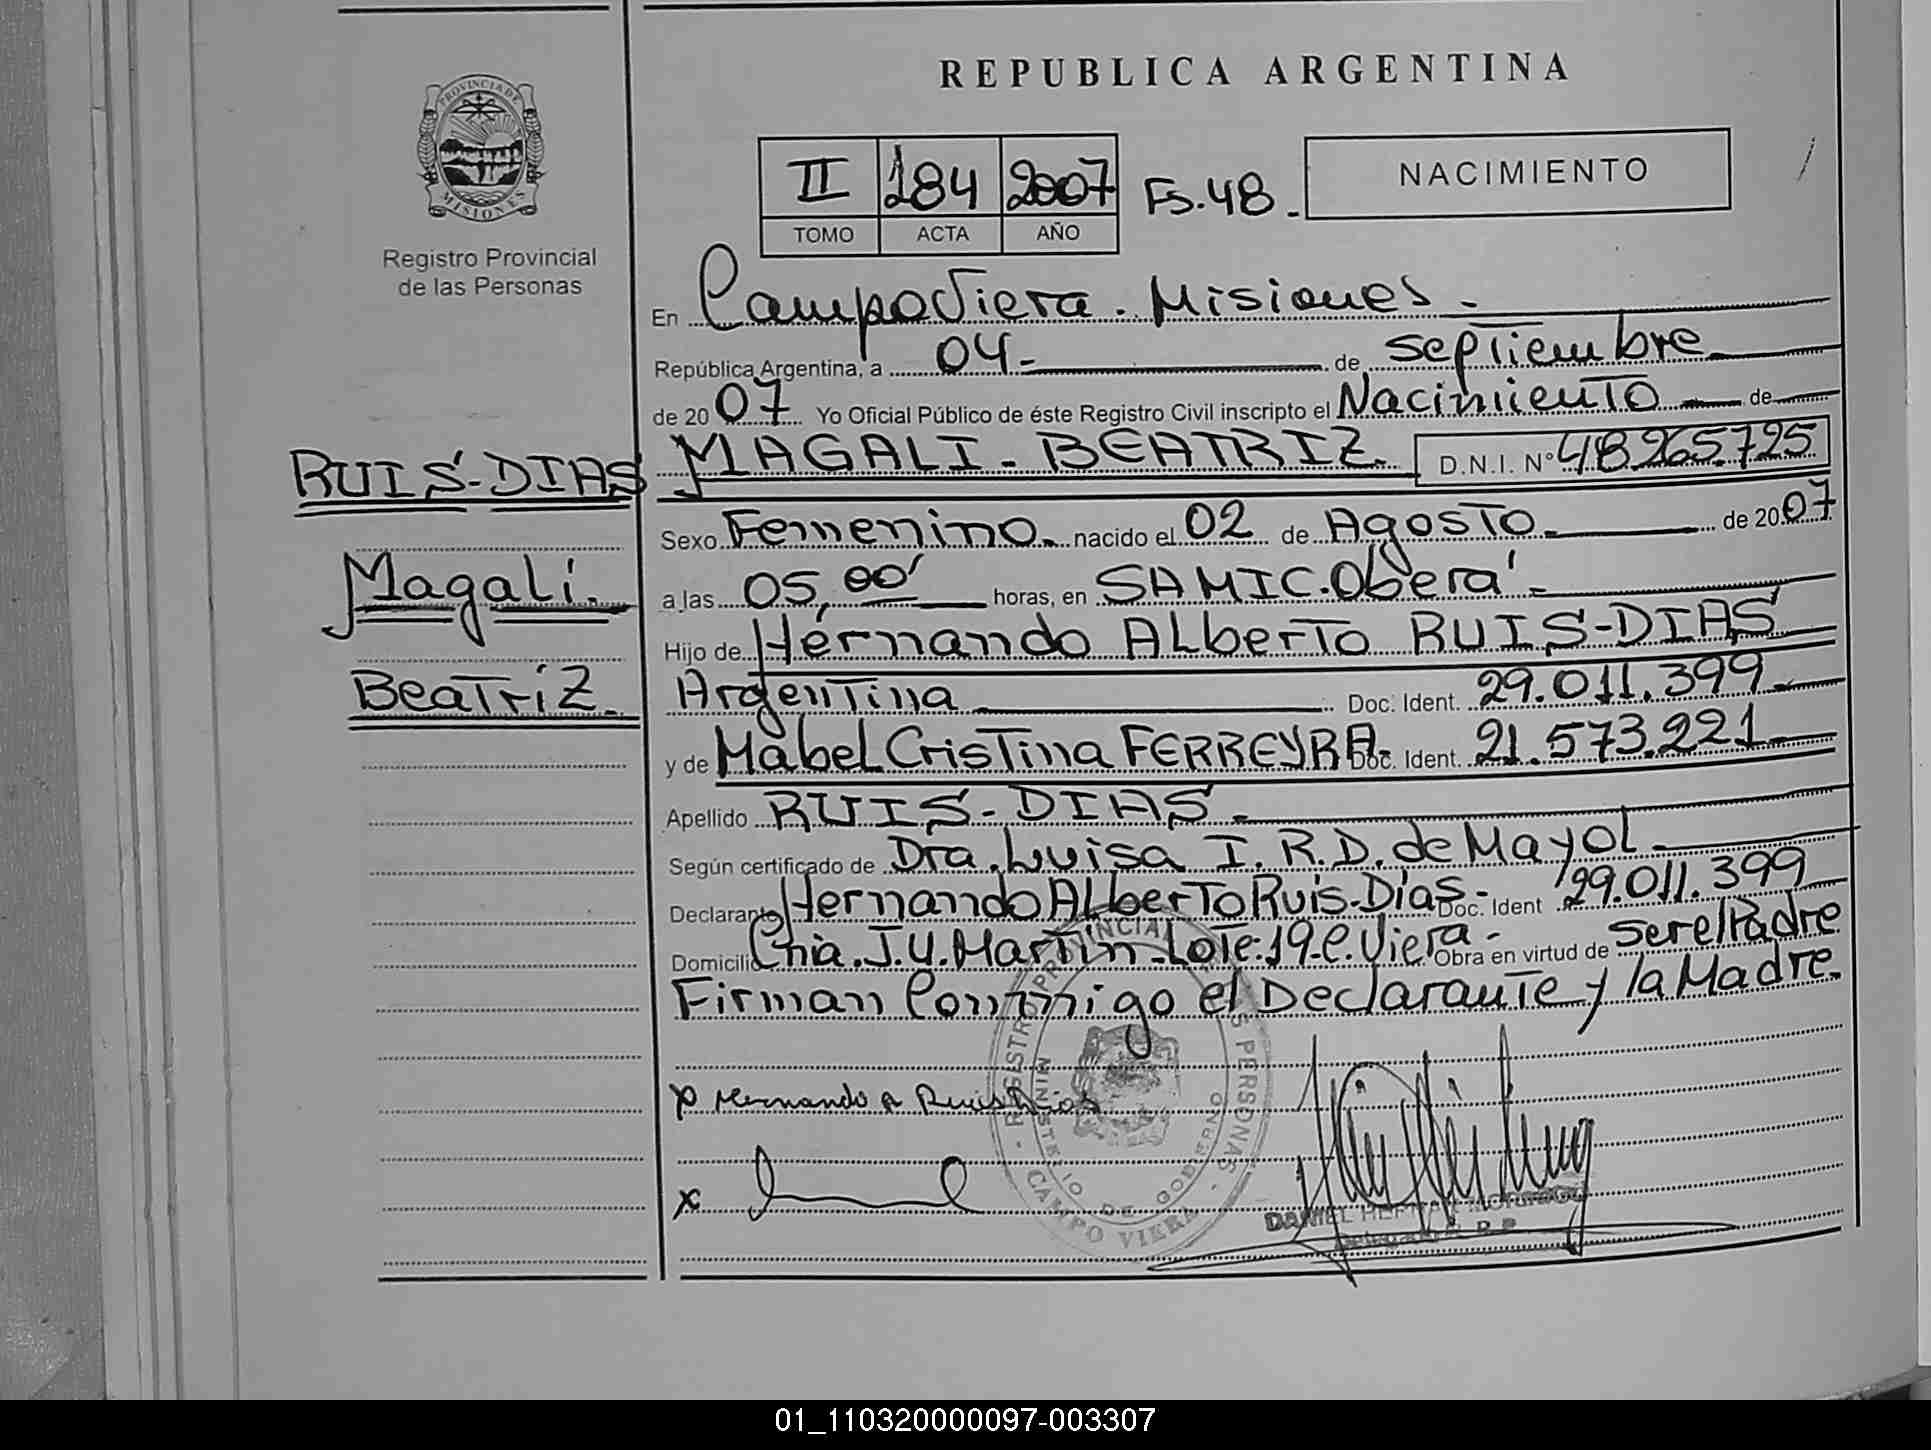 REPUBLICA ARGENTINA
PROVINCIA DE
MISIONES
Registro Provincial
de las Personas
II 184 2007 Fs. 48.
TOMO ACTA AÑO
NACIMIENTO
En Campo Viera. Misiones.-
República Argentina, a 04- de septiembre
de 2007 Yo Oficial Público de éste Registro Civil inscripto el Nacimiento de
RUIS-DIAS
Magali.
Beatriz.
MAGALI-BEATRIZ. D.N.I. Nº 48.265.725
Sexo Femenino. nacido el 02 de Agosto.- de 2007
a las 05,00' horas, en SAMIC. Oberá-
Hijo de Hernando Alberto RUIS-DIAS
Argentina Doc. Ident. 29.011.399-
y de Mabel Cristina FERREYRA. Doc. Ident. 21.573.221-
Apellido RUIS-DIAS.-
Según certificado de Dra. Luisa I. R. D. de Mayol-
Declarante Hernando Alberto Ruis-Dias- Doc. Ident 29.011.399
Domicilio Cnia. J.U. Martin-Lote:19-C. Viera- Obra en virtud de ser el Padre
Firman Conmigo el Declarante y la Madre.
x Hernando A Ruis Dias
x
REGISTRO PROVINCIAL DE LAS PERSONAS
MINISTERIO DE GOBIERNO
CAMPO VIERA
DANIEL HERNAN
01_110320000097-003307